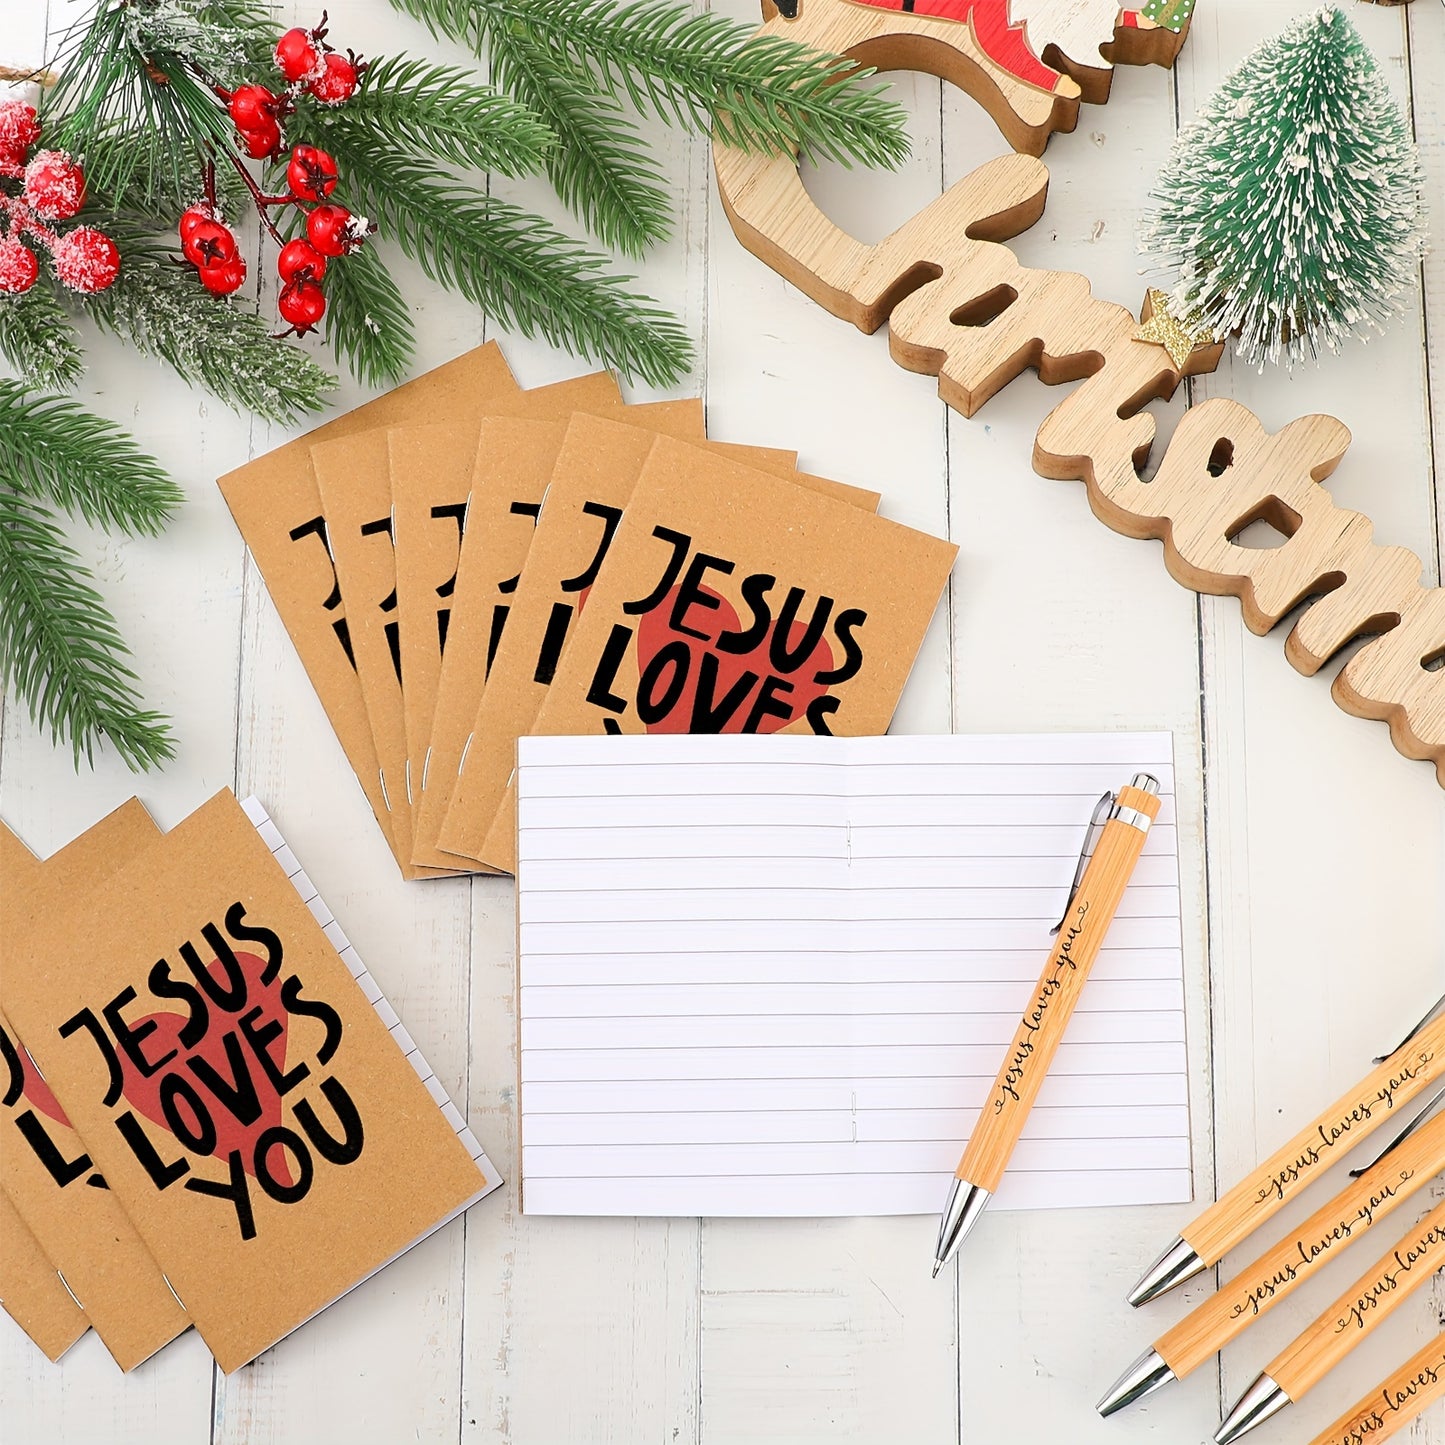 Christma
JESUS
LOVES
JESUS
LOVES
YOU
L
jesus loves you
jesus loves you
jesus loves you
jesus loves
jesus loves